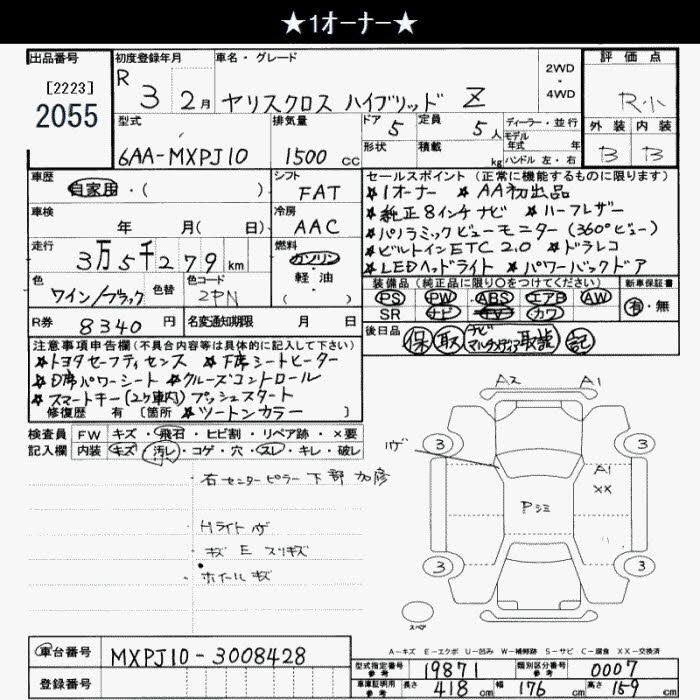 ★1オーナー★
出品番号
[2223]
2055
初度登録年月
R 3 2月
車名・グレード
ヤリスクロス ハイブリッド Z
2WD・4WD
評価点
R-小
外装 内装
B B
型式
6AA-MXPJ10
排気量
1500 cc
ドア 5
定員 5人
形状
積載 kg
ディーラー・並行
モデル年式 年
ハンドル 左・右
車歴
自家用・( )
シフト
FAT
車検
年 月( 日)
冷房
AAC
走行
3万5千279 km
燃料
ガソリン
軽・油
( )
色
ワイン/ブラック
色替
色コード
2PN
R券 8340 円
名変通知期限 月 日
セールスポイント (正常に機能するものに限ります)
★1オーナー ★AA初出品
★純正8インチナビ ★ハーフレザー
★パノラミックビューモニター(360°ビュー)
★ビルトインETC2.0 ★ドラレコ
★LEDヘッドライト ★パワーバックドア
装備品 (純正品に限り○をつけてください)
PS PW ABS エアB AW
SR ナビ TV カワ
新車保証書
有・無
後日品
保 取 ナビ マルチメディア 取説 記
注意事項申告欄(不具合内容等は具体的に記入して下さい)
★トヨタセーフティセンス ★下席シートヒーター
★D席パワーシート ★クルーズコントロール
★スマートキー(2ヶ車内)プッシュスタート
修復歴 有 [箇所 ★ツートンカラー ]
検査員 FW キズ・飛石・ヒビ割・リペア跡・×要
記入欄 内装 キズ・汚レ・コゲ・穴・スレ・キレ・破レ
・右センターピラー下部加修
・Hライト
・キズ E スリキズ
・ホイールキズ
A2 A1
3 3
A1
XX
Pシミ
3 3
スペア
A-キズ E-エクボ U-凹み W-補修跡 S-サビ C-腐食 XX-交換済
車台番号 MXPJ10-3008428
登録番号
型式指定番号 参考 19871
類別区分番号 参考 0007
車庫証明用 参考 長さ 418 cm 幅 176 cm 高さ 159 cm